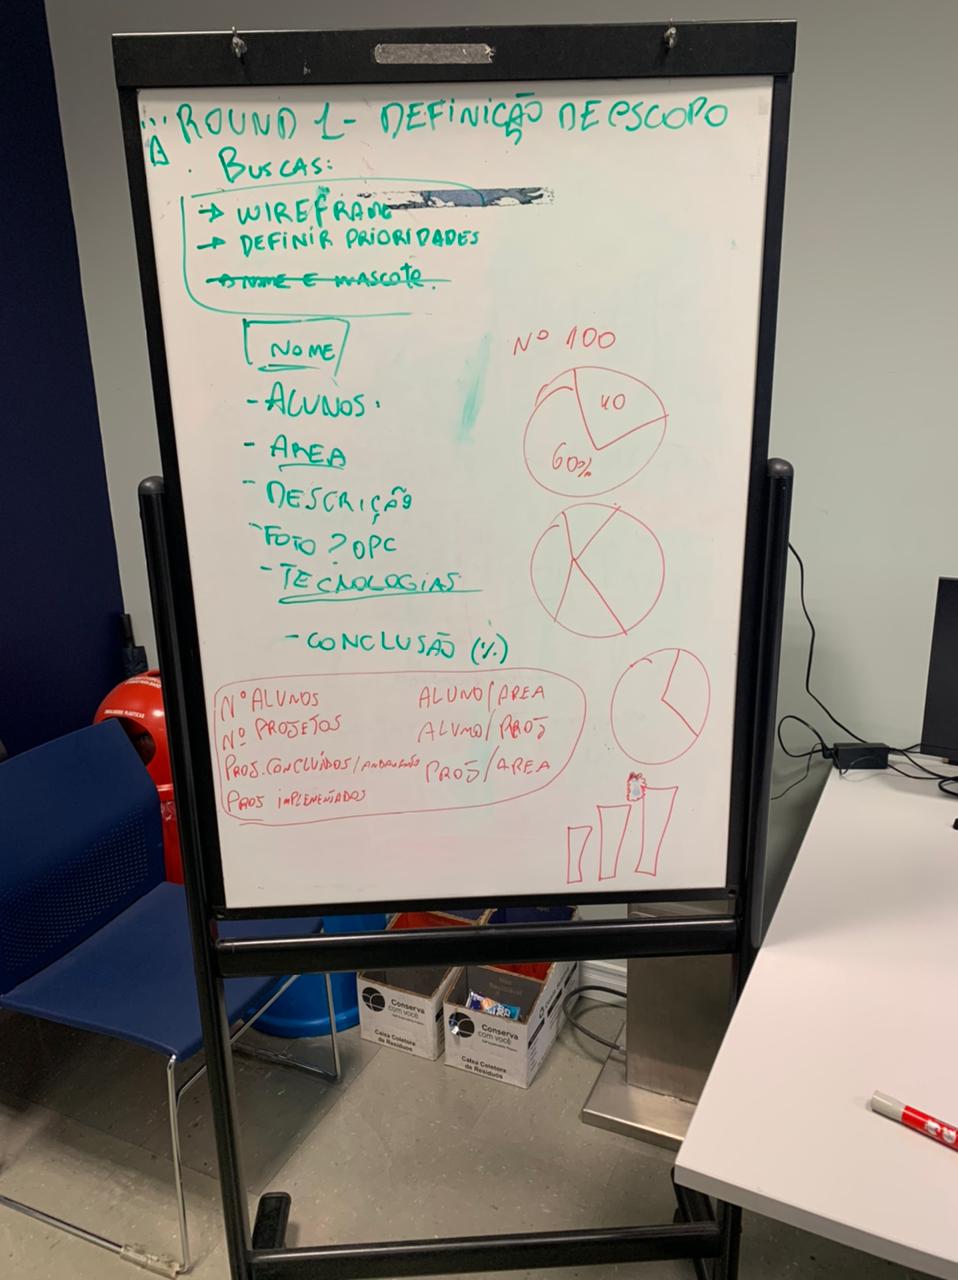 ROUND 1 - DEFINIÇÃO DE ESCOPO
BUSCAS:
→ WIREFRAME
→ DEFINIR PRIORIDADES
→ NOME E MASCOTE.
NOME
- ALUNOS.
- ÁREA
- DESCRIÇÃO
- FOTO? OPC
- TECNOLOGIAS
- CONCLUSÃO (%)
Nº 100
40
60%
Nº ALUNOS
Nº PROJETOS
PROJ. CONCLUÍDOS/ANDAMENTO
PROJ IMPLEMENTADOS
ALUNO/AREA
ALUNO/PROJ
PROJ/AREA
Conserva
com você
Caixa Coletora
de Resíduos
Conserva
com você
Caixa Coletora
de Resíduos